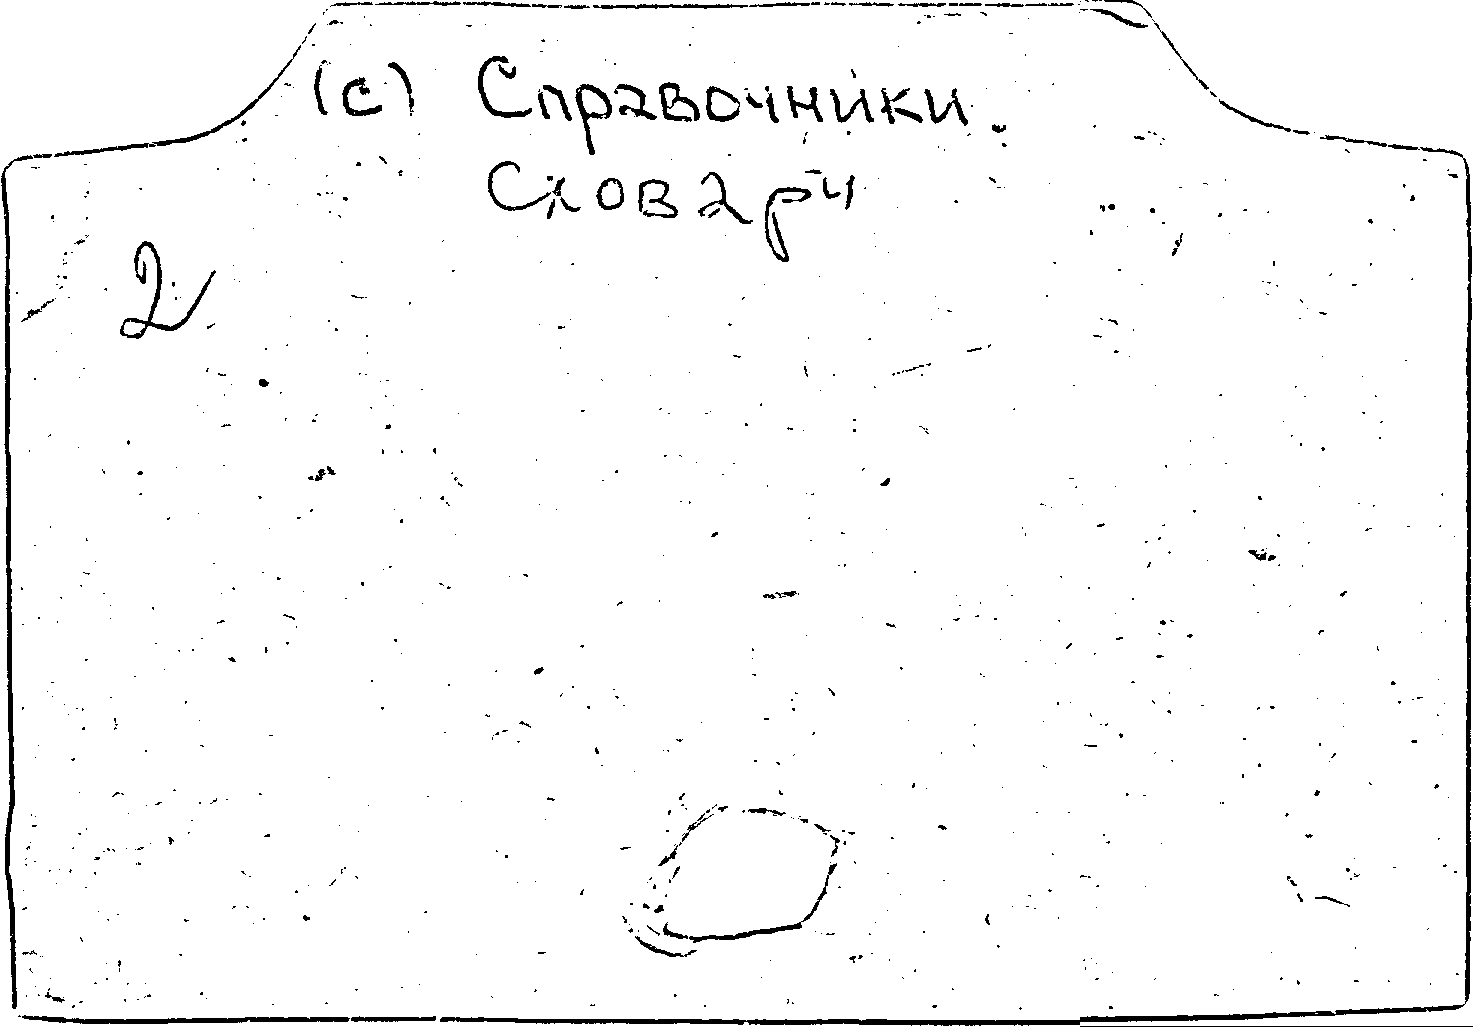 (с) Справочники.
Словари
2